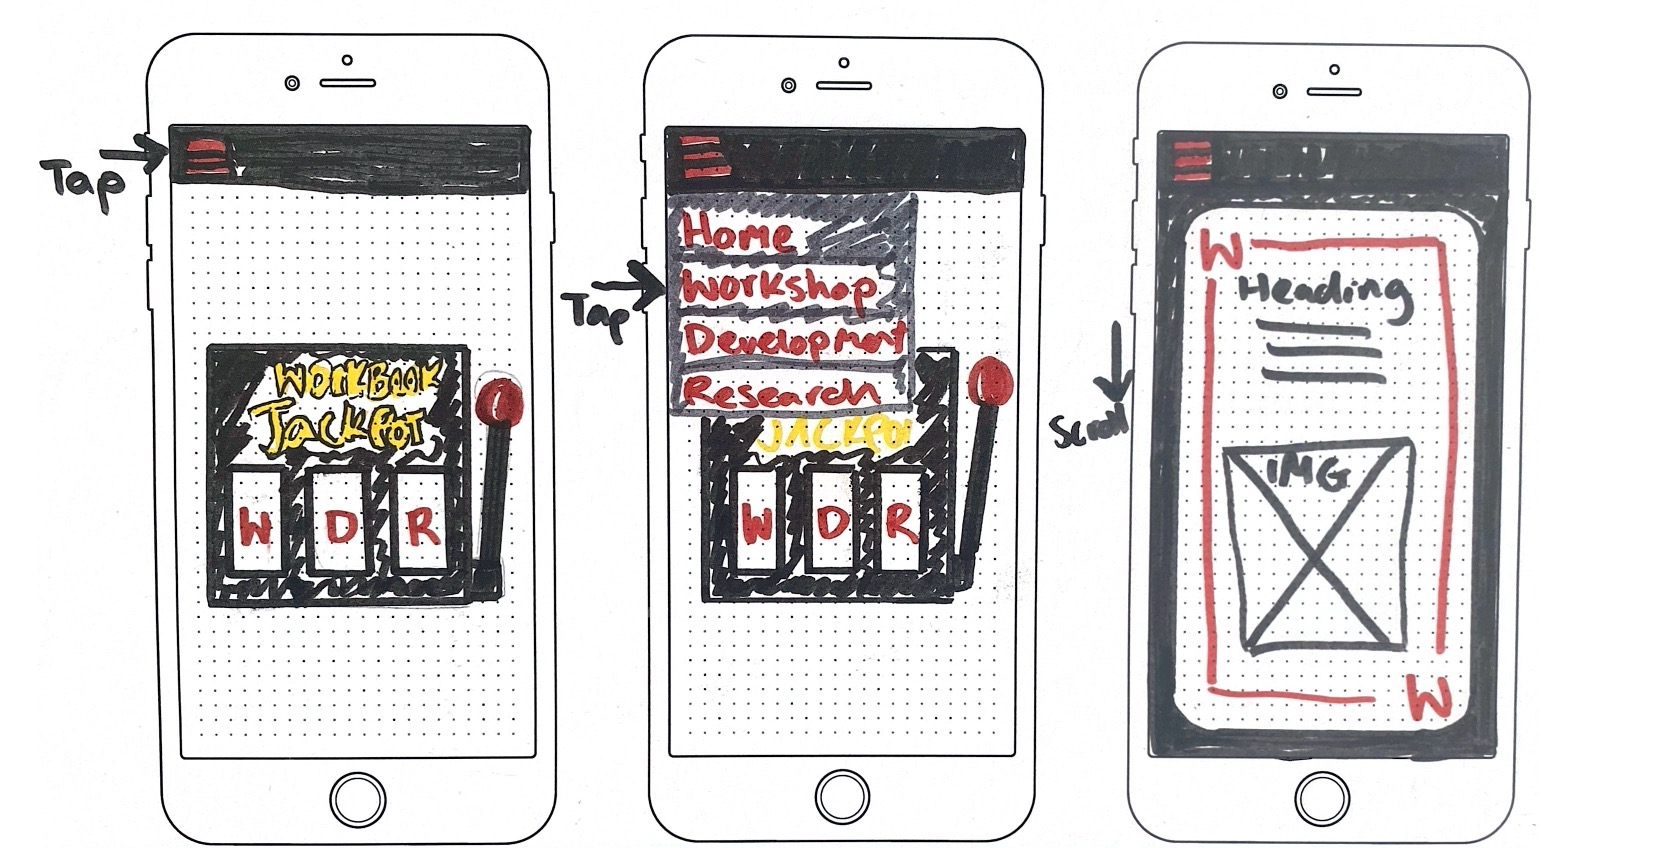 Tap
WORKBOOK
JackPOT
W D R
Tap
Home
Workshop
Development
Research
JACKPOT
W D R
Scroll
W
Heading
IMG
W